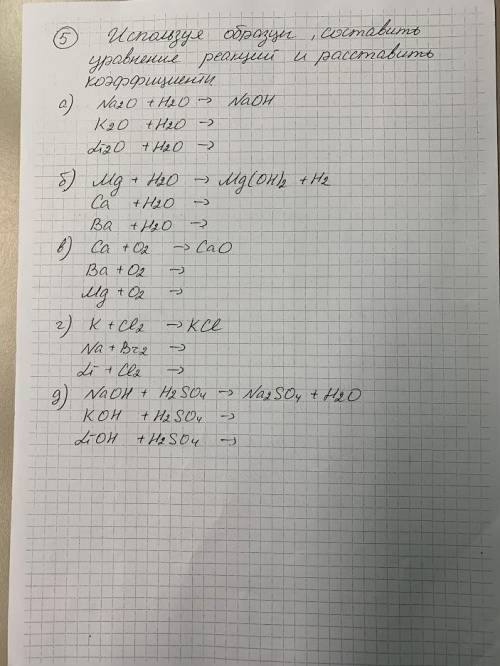 5 Используя образцы, составить
уравнение реакций и расставить
коэффициенты.
а) Na2O + H2O → NaOH
K2O + H2O →
Li2O + H2O →
б) Mg + H2O → Mg(OH)2 + H2
Ca + H2O →
Ba + H2O →
в) Ca + O2 → CaO
Ba + O2 →
Mg + O2 →
г) K + Cl2 → KCl
Na + Br2 →
Li + Cl2 →
д) NaOH + H2SO4 → Na2SO4 + H2O
KOH + H2SO4 →
LiOH + H2SO4 →